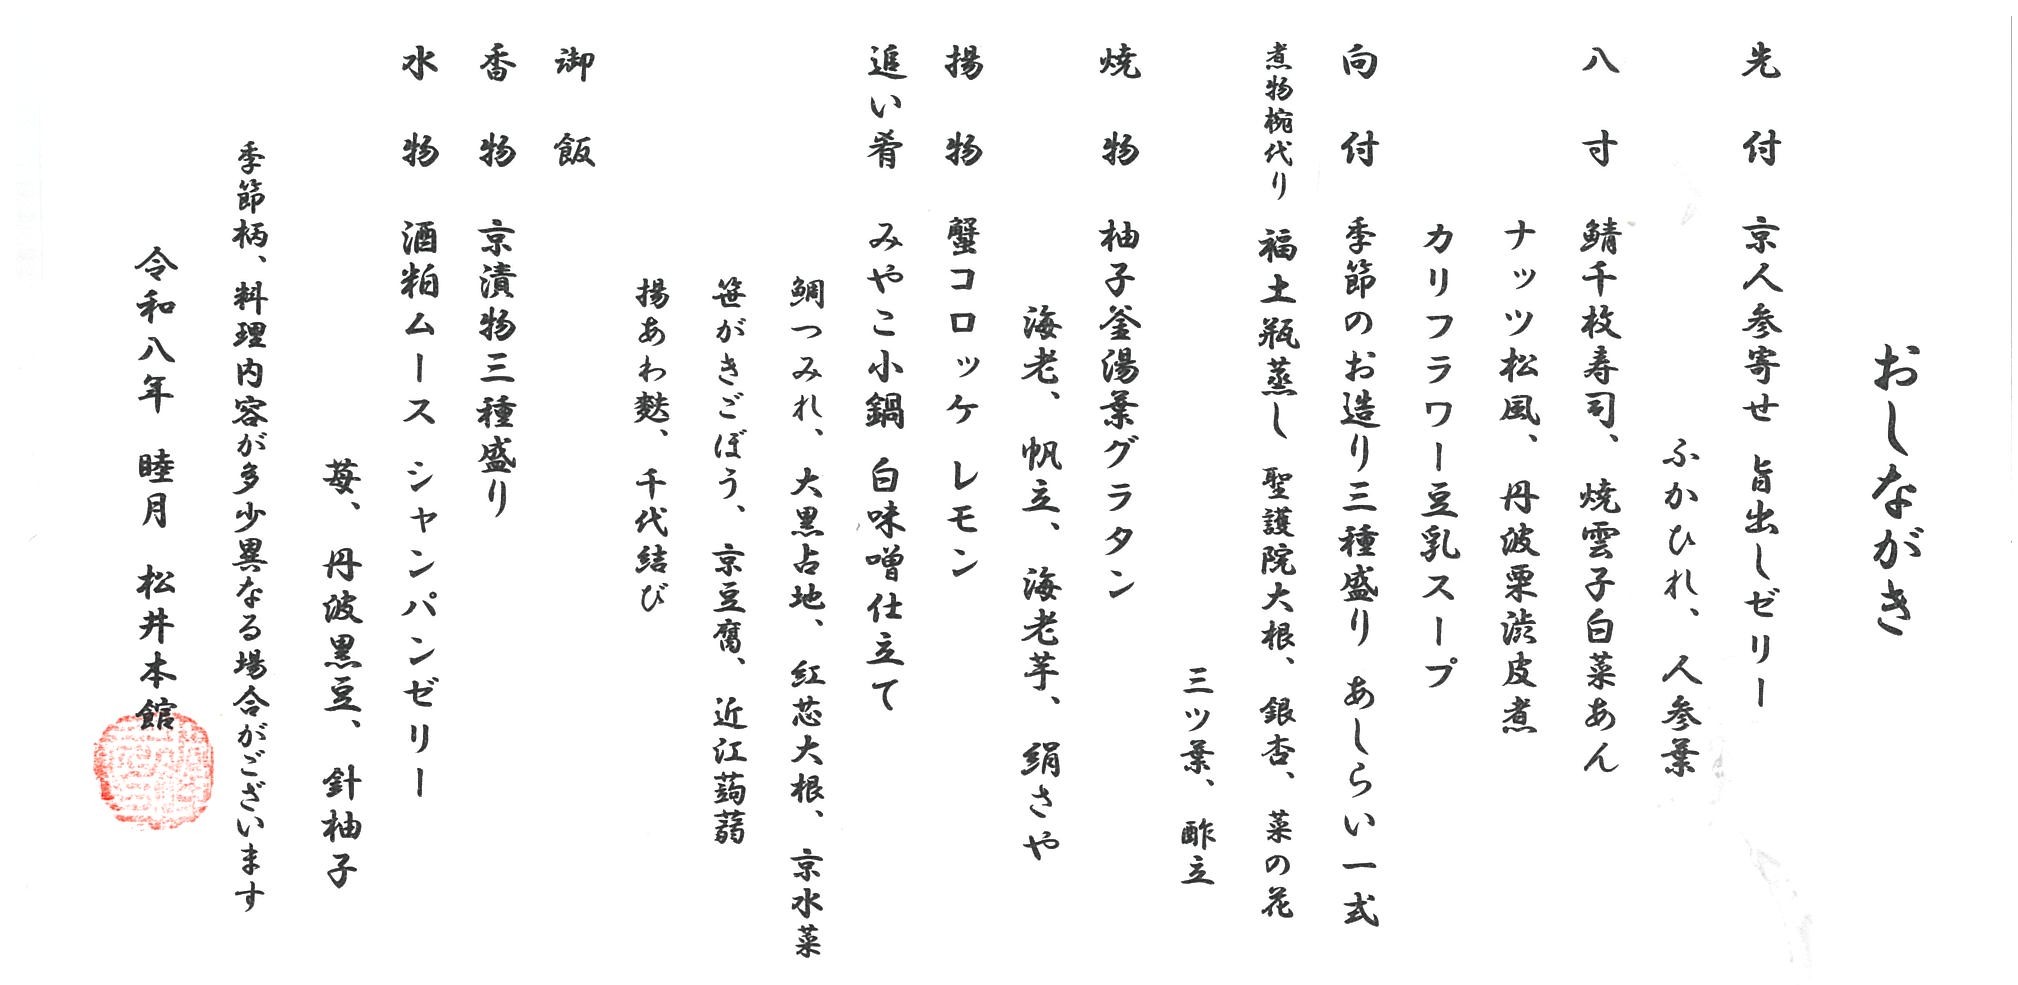 おしながき
先付 京人参寄せ 旨出しゼリー
ふかひれ、人参葉
八寸 鯖千枚寿司、焼雲子白菜あん
ナッツ松風、丹波栗渋皮煮
カリフラワー豆乳スープ
向付 季節のお造り三種盛り あしらい一式
煮物椀代り 福土瓶蒸し 聖護院大根、銀杏、菜の花
三ツ葉、酢立
焼物 柚子釜湯葉グラタン
海老、帆立、海老芋、絹さや
揚物 蟹コロッケ レモン
追い肴 みやこ小鍋 白味噌仕立て
鯛つみれ、大黒占地、紅芯大根、京水菜
笹がきごぼう、京豆腐、近江蒟蒻
揚あわ麩、千代結び
御飯
香物 京漬物三種盛り
水物 酒粕ムース シャンパンゼリー
苺、丹波黒豆、針柚子
季節柄、料理内容が多少異なる場合がございます
令和八年 睦月 松井本館